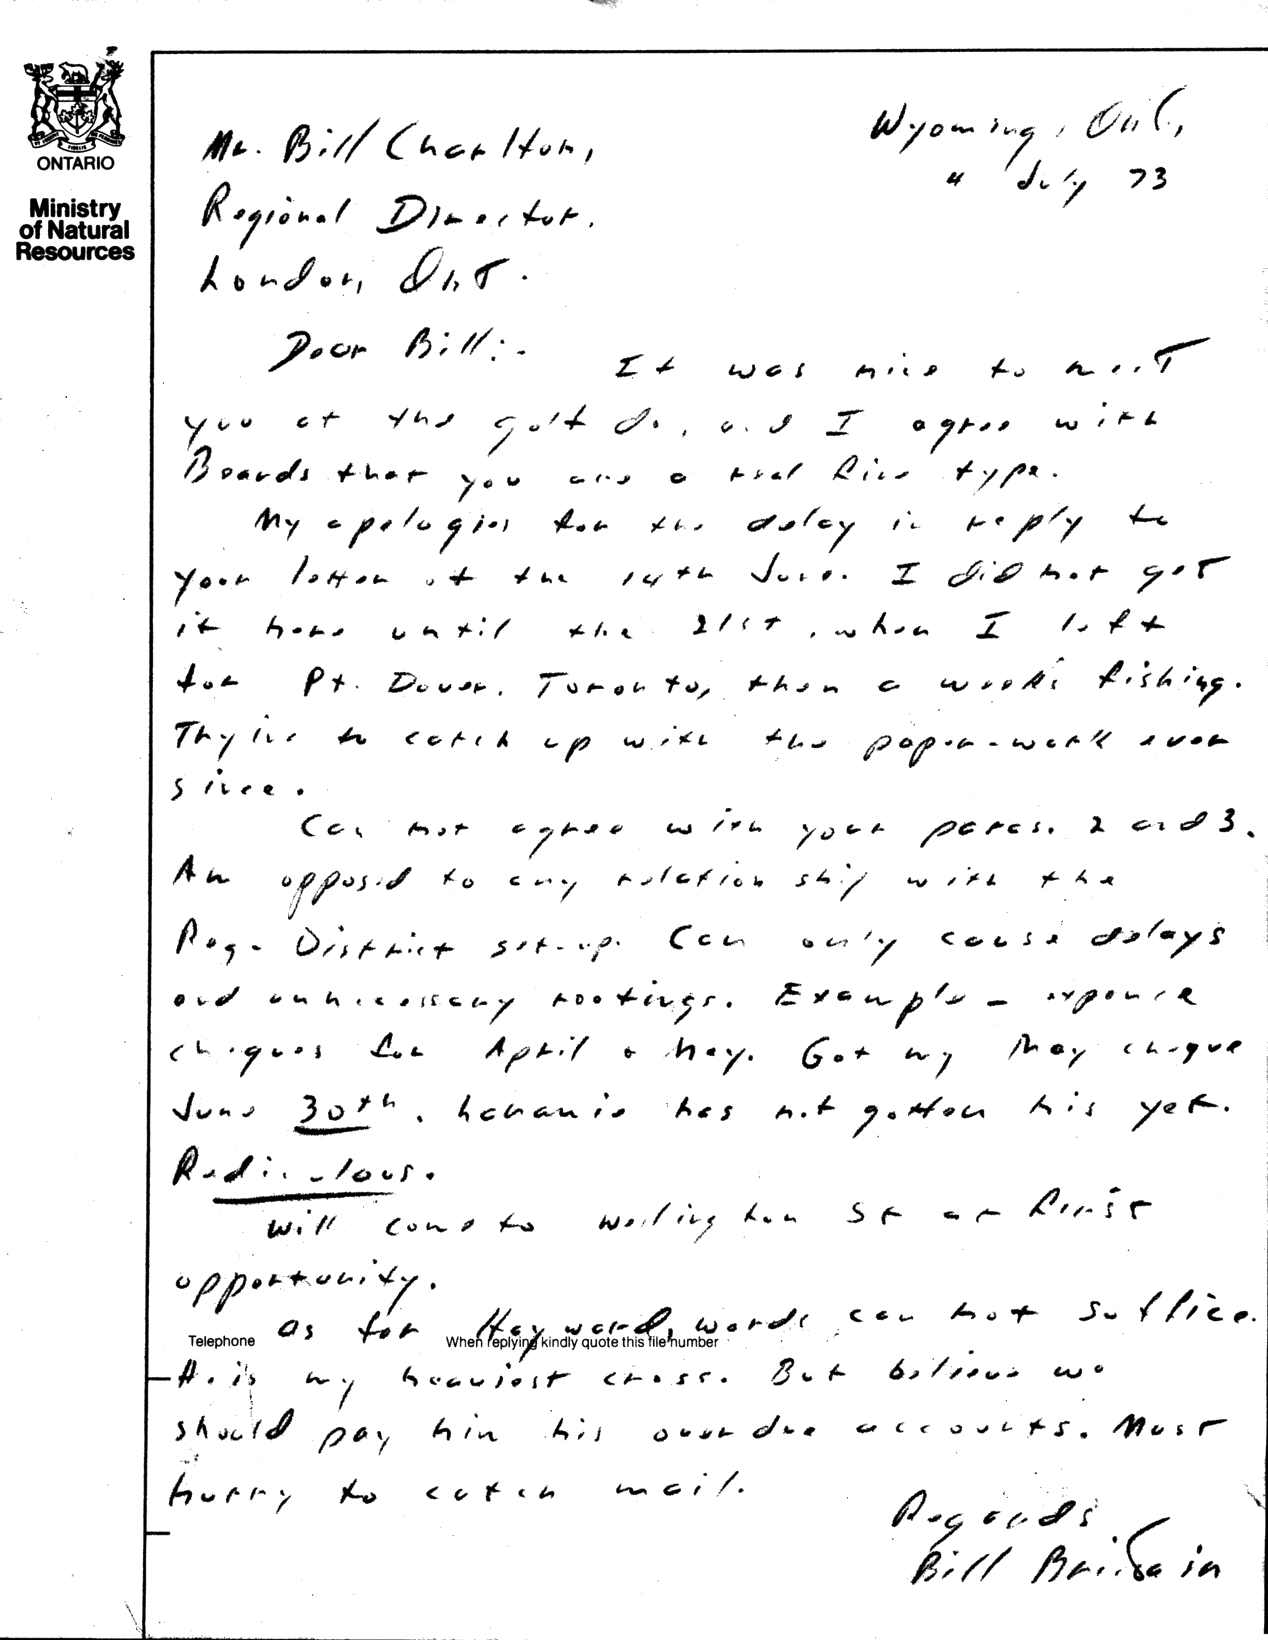 ONTARIO
Ministry
of Natural
Resources
Wyoming, Ont.,
4 July 73
Mr. Bill Charlton,
Regional Director.
London, Ont.
Dear Bill:-
It was nice to meet
you at the golf do, and I agree with
Boards that you are a real fine type.
My apologies for the delay in reply to
your letter of the 14th June. I did not get
it here until the 21st, when I left
for Pt. Dover, Toronto, then a week's fishing.
Trying to catch up with the paper-work ever
since.
Can not agree with your paras. 2 and 3.
Am opposed to any relation ship with the
Reg- District set-up. Can only cause delays
and unnecessary rootings. Example - expence
cheques for April & May. Got my May cheque
June 30th, has not gotten his yet.
Rediculous.
Will come to Wellington St at first
opportunity.
As for Hayward, words can not suffice.
Telephone
When replying kindly quote this file number
He is my heaviest cross. But believe we
should pay him his over due accounts. Must
hurry to catch mail.
Regards
Bill Brittain